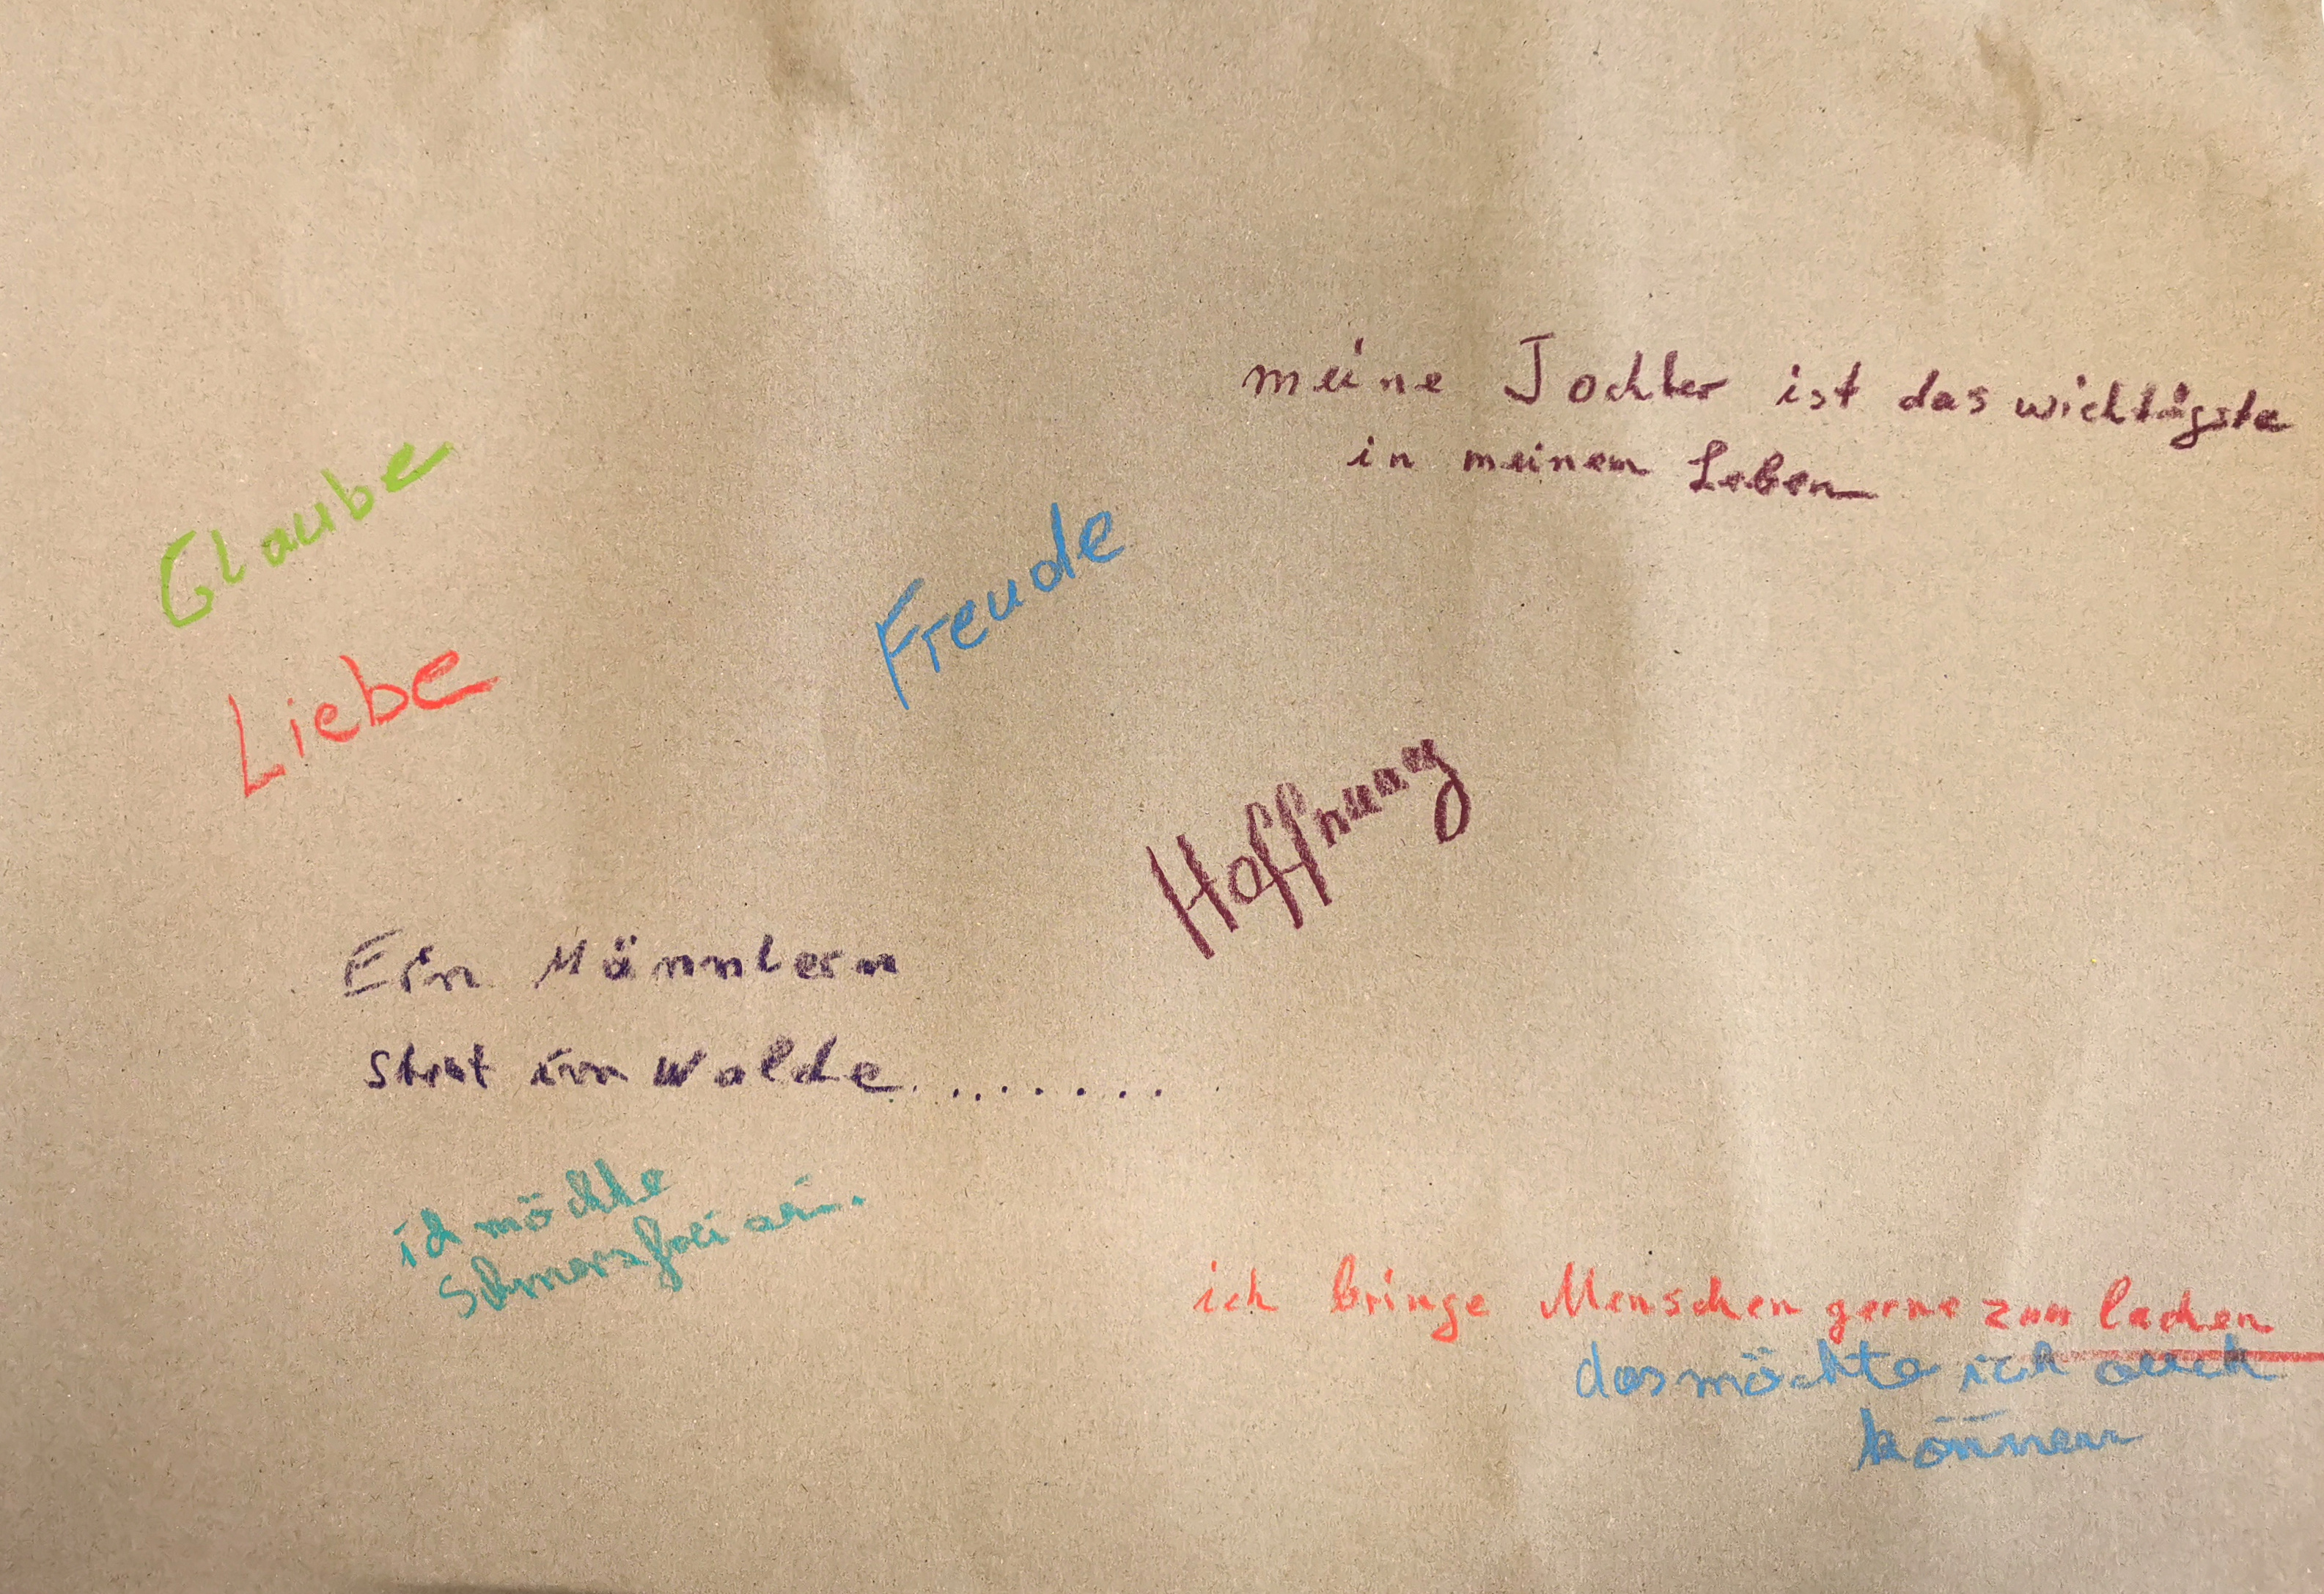 meine Tochter ist das wichtigste
in meinem Leben
Glaube
Freude
Liebe
Hoffnung
Ein Männlein
steht im Walde.........
ich möchte
schmerzfrei sein.
ich bringe Menschen gerne zum lachen
das möchte ich auch
können